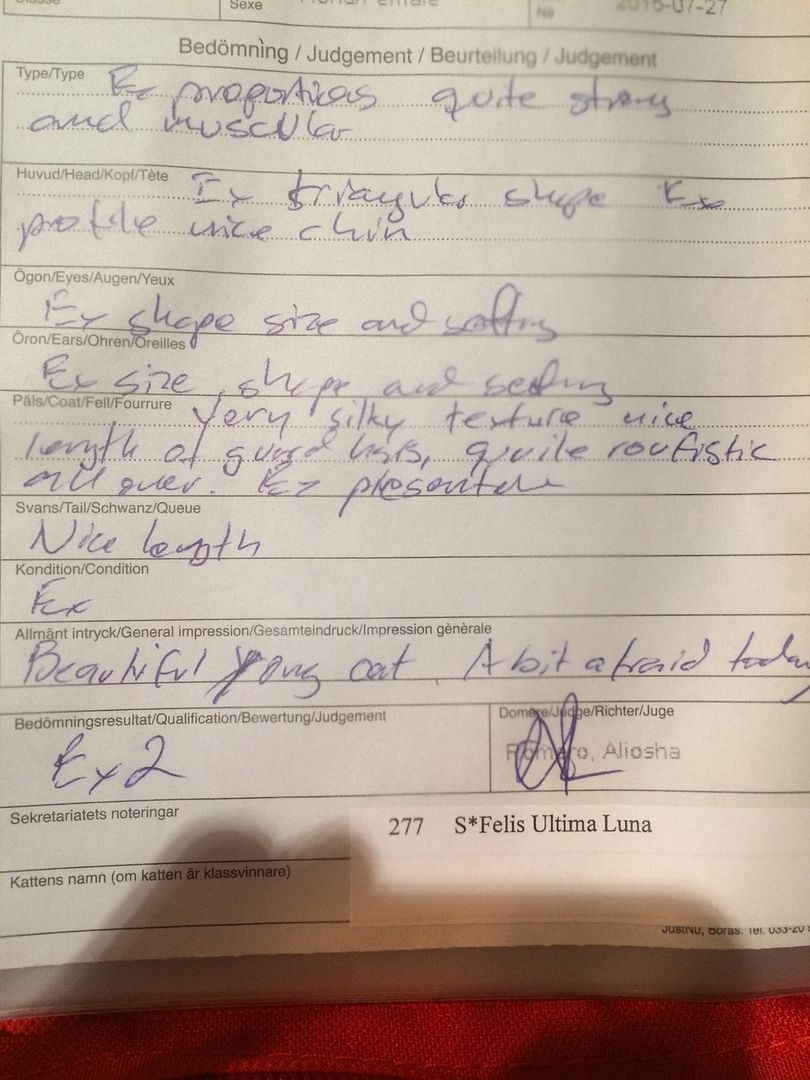 Sexe
Né 2015-07-27
Bedömning / Judgement / Beurteilung / Judgement
Type/Type Ex proportions quite strong
and muscular
Huvud/Head/Kopf/Tète Ex triangular shape Ex
profile nice chin
Ögon/Eyes/Augen/Yeux
Ex shape size and setting
Öron/Ears/Ohren/Oreilles
Ex size, shape and setting
Päls/Coat/Fell/Fourrure Very silky texture nice
length of guard hairs, quite
all over. Ex
Svans/Tail/Schwanz/Queue
Nice length
Kondition/Condition
Ex
Allmänt intryck/General impression/Gesamteindruck/Impression gènèrale
Beautiful young cat. A bit afraid today
Bedömningsresultat/Qualification/Bewertung/Judgement
Domare/Judge/Richter/Juge
Ex 2
Romero, Aliosha
Sekretariatets noteringar
277 S*Felis Ultima Luna
Kattens namn (om katten är klassvinnare)
JustNu, Borås. Tel. 033-20